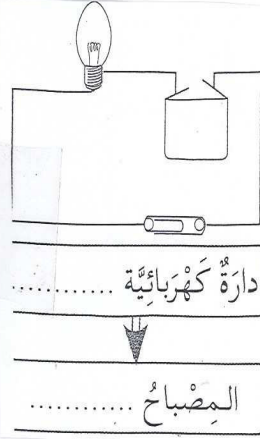 دارَةٌ كَهْرَبائِيَّة ............
المِصْباحُ ............